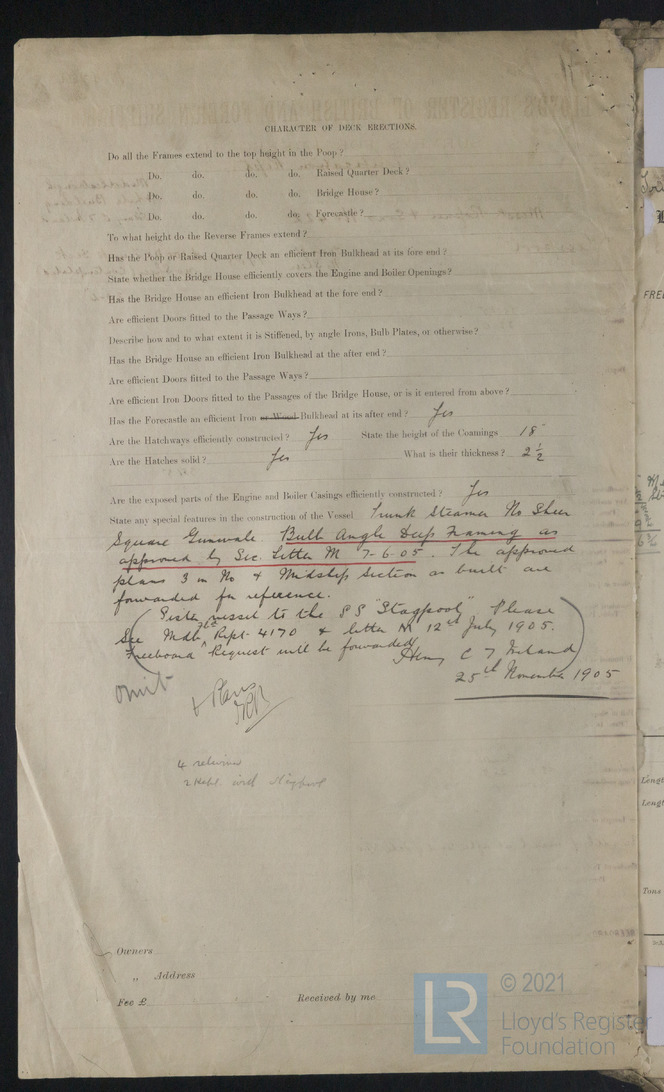 CHARACTER OF DECK ERECTIONS.
Do all the Frames extend to the top height in the Poop?
Do. do. do. do. Raised Quarter Deck?
Do. do. do. do. Bridge House?
Do. do. do. do. Forecastle?
To what height do the Reverse Frames extend?
Has the Poop or Raised Quarter Deck an efficient Iron Bulkhead at its fore end?
State whether the Bridge House efficiently covers the Engine and Boiler Openings?
Has the Bridge House an efficient Iron Bulkhead at the fore end?
Are efficient Doors fitted to the Passage Ways?
Describe how and to what extent it is Stiffened, by angle Irons, Bulb Plates, or otherwise?
Has the Bridge House an efficient Iron Bulkhead at the after end?
Are efficient Doors fitted to the Passage Ways?
Are efficient Iron Doors fitted to the Passages of the Bridge House, or is it entered from above?
Has the Forecastle an efficient Iron or Wood Bulkhead at its after end? Yes
Are the Hatchways efficiently constructed? Yes State the height of the Coamings 18"
Are the Hatches solid? Yes What is their thickness? 2 1/2
Are the exposed parts of the Engine and Boiler Casings efficiently constructed? Yes
State any special features in the construction of the Vessel Trunk Steamer No Sheer
Square Gunwale. Bulb Angle Deep Framing as
approved by Sec. Letter M 7-6-05. The approved
plans 3 in No & Midship Section as built are
forwarded for reference.
(Sister vessel to the SS "Stagpool" Please
See Mdb Rept. 4170 & letter M 12th July 1905.
Freeboard Request will be forwarded)
Henry C
25th November 1905
Omit
& Plans
4 returned
2 kept with Stagpool
Owners
„ Address
Fee £ Received by me
FREE
Length
Length
Tons
LR
© 2021
Lloyd's Register
Foundation